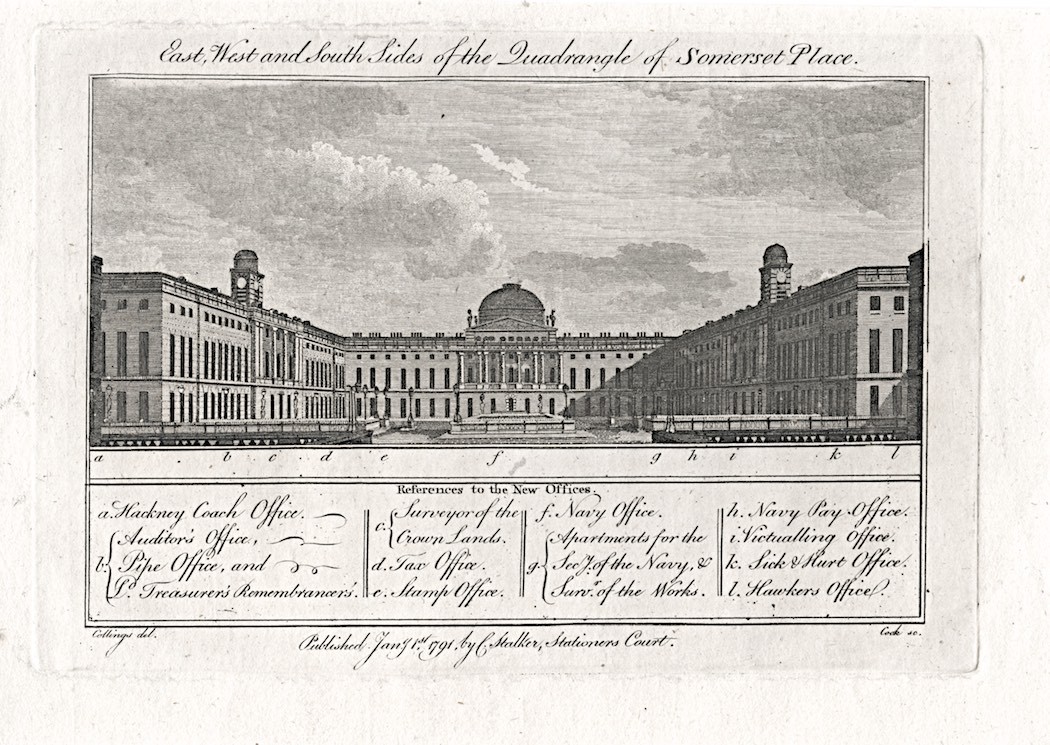 East, West and South Sides of the Quadrangle of Somerset Place.
a b c d e f g h i k l
References to the New Offices.
a. Hackney Coach Office.
b. Auditor's Office,
Pipe Office, and
Ld. Treasurer's Remembrancer's.
c. Surveyor of the
Crown Lands.
d. Tax Office.
e. Stamp Office.
f. Navy Office.
g. Apartments for the
Secy. of the Navy, &
Survr. of the Works.
h. Navy Pay Office.
i. Victualling Office.
k. Sick & Hurt Office.
l. Hawkers Office.
Collings del.
Published Jany. 1st. 1791. by C. Stalker, Stationers Court.
Cook sc.